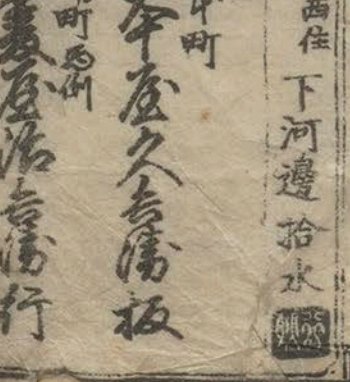 西住
下河邊拾水
町
本屋久兵衛板
町西側
屋治兵衛行